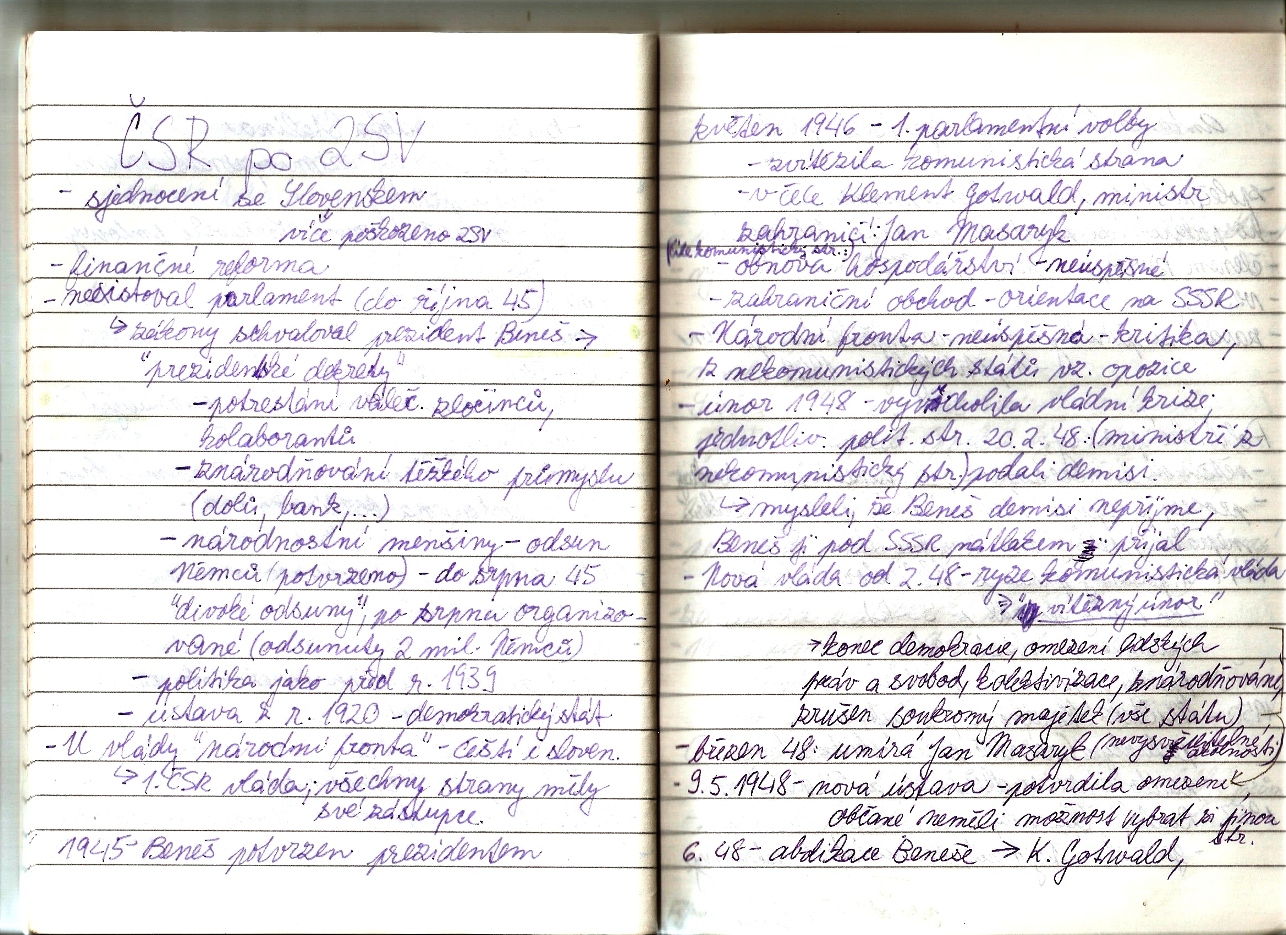 ČSR po 2SV
- sjednocení se Slovenskem
více poškozeno 2SV
- finanční reforma
- neexistoval parlament (do října 45)
↳ zákony schvaloval prezident Beneš →
"prezidentské dekrety"
- potrestání váleč. zločinců,
kolaborantů
- znárodňování těžkého průmyslu
(dolů, bank, ...)
- národnostní menšiny - odsun
Němců (potvrzeno) - do srpna 45
"divoké odsuny", po srpnu organizo-
vané (odsunuty 2 mil. Němců)
- politika jako před r. 1939
- ústava z r. 1920 - demokratický stát
- U vlády "národní fronta" - češti i sloven.
↳ 1. ČSR vláda; všechny strany měly
své zástupce.
1945 - Beneš potvrzen prezidentem
květen 1946 - 1. parlamentní volby
- zvítězila komunistická strana
- v čele Klement Gotwald, ministr
zahraničí: Jan Masaryk
komunistický str.:)
- obnova hospodářství - neúspěšné
- zahraniční obchod - orientace na SSSR
- Národní fronta - neúspěšná - kritika,
z nekomunistických států vz. opozice
- únor 1948 - vyvrcholila vládní krize,
jednotliv. polit. str. 20.2.48. (ministři z
nekomunistický str.) podali demisi.
↳ mysleli, že Beneš demisi nepřijme,
Beneš ji pod SSSR nátlakem přijal
- Nová vláda od 2.48 - ryze komunistická vláda
⇒ "vítězný únor"
→ konec demokracie, omezení lidských
práv a svobod, kolektivizace, znárodňování,
zrušen soukromý majetek (vše státu)
- březen 48: umírá Jan Masaryk (nevysvětlitelné okolnosti)
- 9.5.1948 - nová ústava - potvrdila omezení
občané neměli možnost vybrat si jinou
str.
6. 48 - abdikace Beneše → K. Gotwald,